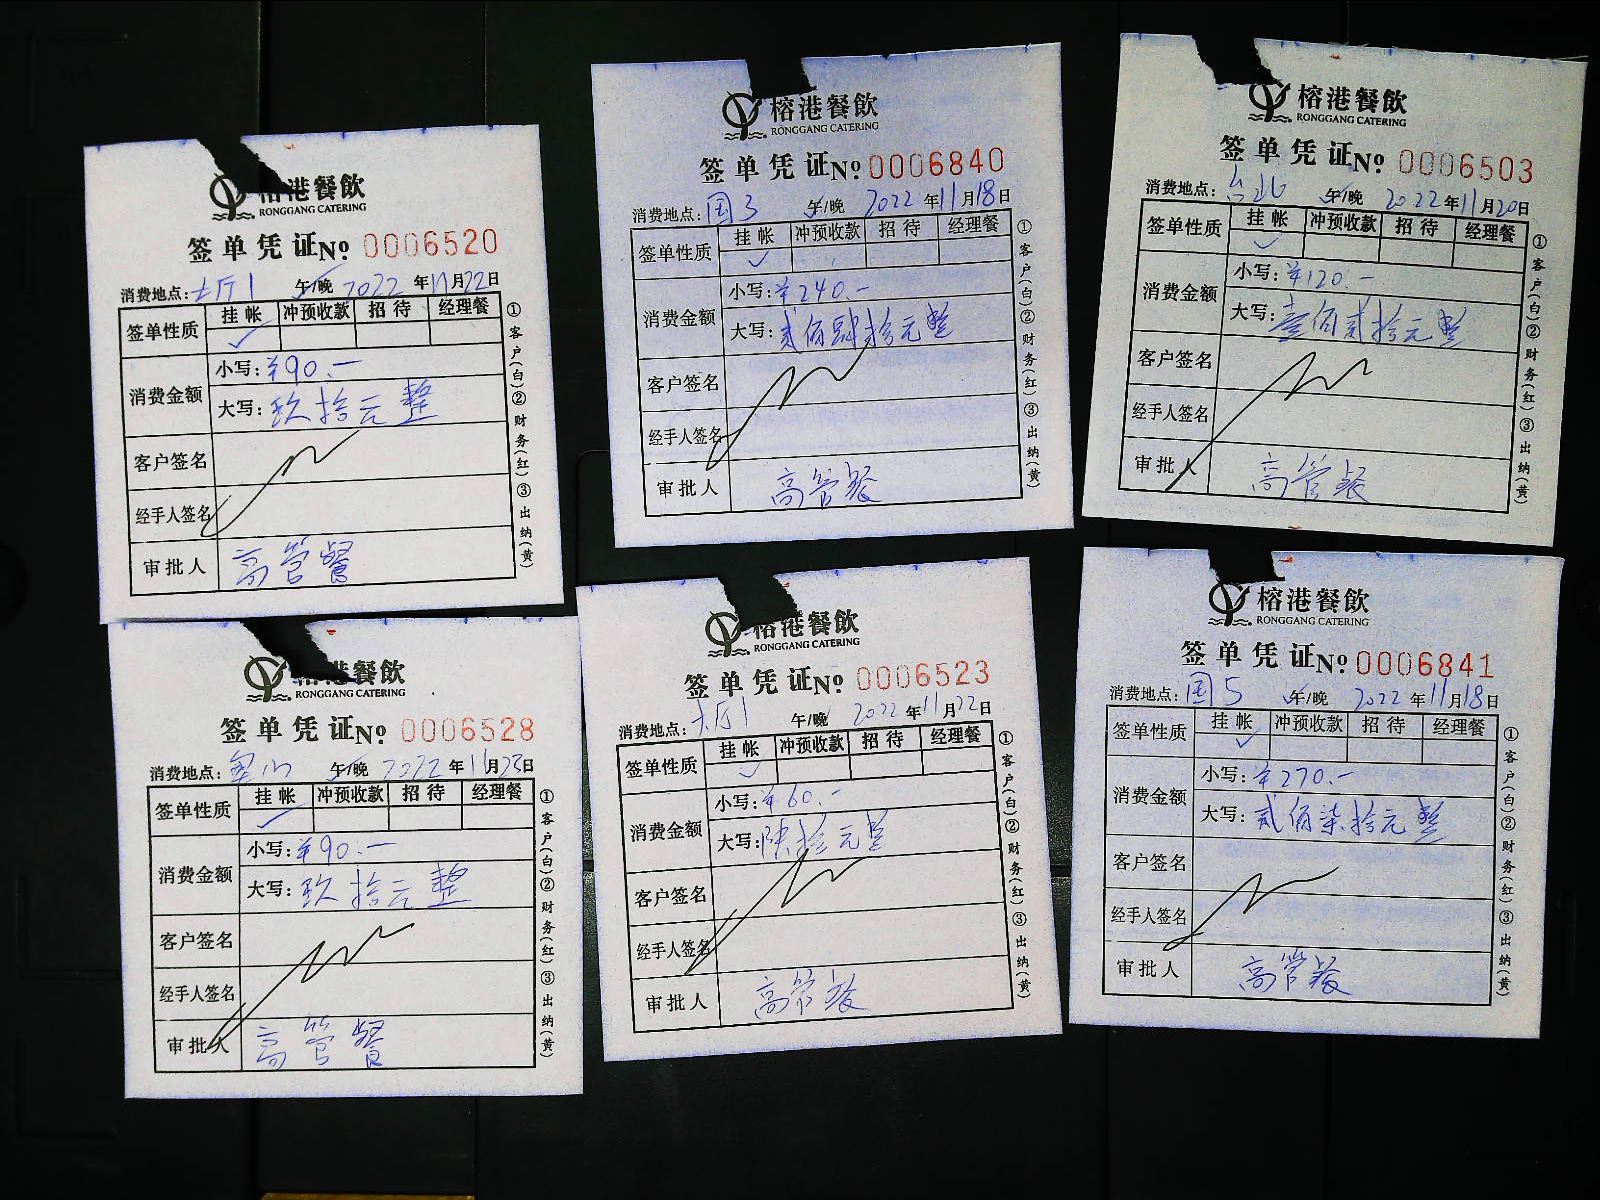 榕港餐飲
RONGGANG CATERING
签单凭证 No 0006520
消费地点: 大厅1 午/晚 2022年11月22日
签单性质 挂帐 冲预收款 招待 经理餐
✓
消费金额
小写: ¥90.—
大写: 玖拾元整
客户签名
经手人签名
审批人 高管餐
①客户(白)②财务(红)③出纳(黄)
榕港餐飲
RONGGANG CATERING
签单凭证 No 0006840
消费地点: 国3 午/晚 2022年11月18日
签单性质 挂帐 冲预收款 招待 经理餐
✓
消费金额
小写: ¥240.—
大写: 贰佰肆拾元整
客户签名
经手人签名
审批人 高管餐
①客户(白)②财务(红)③出纳(黄)
榕港餐飲
RONGGANG CATERING
签单凭证 No 0006503
消费地点: 台北 午/晚 2022年11月20日
签单性质 挂帐 冲预收款 招待 经理餐
✓
消费金额
小写: ¥120.—
大写: 壹佰贰拾元整
客户签名
经手人签名
审批人 高管餐
①客户(白)②财务(红)③出纳(黄)
榕港餐飲
RONGGANG CATERING
签单凭证 No 0006528
消费地点: 午/晚 2022年11月23日
签单性质 挂帐 冲预收款 招待 经理餐
✓
消费金额
小写: ¥90.—
大写: 玖拾元整
客户签名
经手人签名
审批人 高管餐
①客户(白)②财务(红)③出纳(黄)
榕港餐飲
RONGGANG CATERING
签单凭证 No 0006523
消费地点: 大厅1 午/晚 2022年11月22日
签单性质 挂帐 冲预收款 招待 经理餐
✓
消费金额
小写: ¥60.—
大写: 陆拾元整
客户签名
经手人签名
审批人 高管餐
①客户(白)②财务(红)③出纳(黄)
榕港餐飲
RONGGANG CATERING
签单凭证 No 0006841
消费地点: 国5 午/晚 2022年11月18日
签单性质 挂帐 冲预收款 招待 经理餐
✓
消费金额
小写: ¥270.—
大写: 贰佰柒拾元整
客户签名
经手人签名
审批人 高管餐
①客户(白)②财务(红)③出纳(黄)